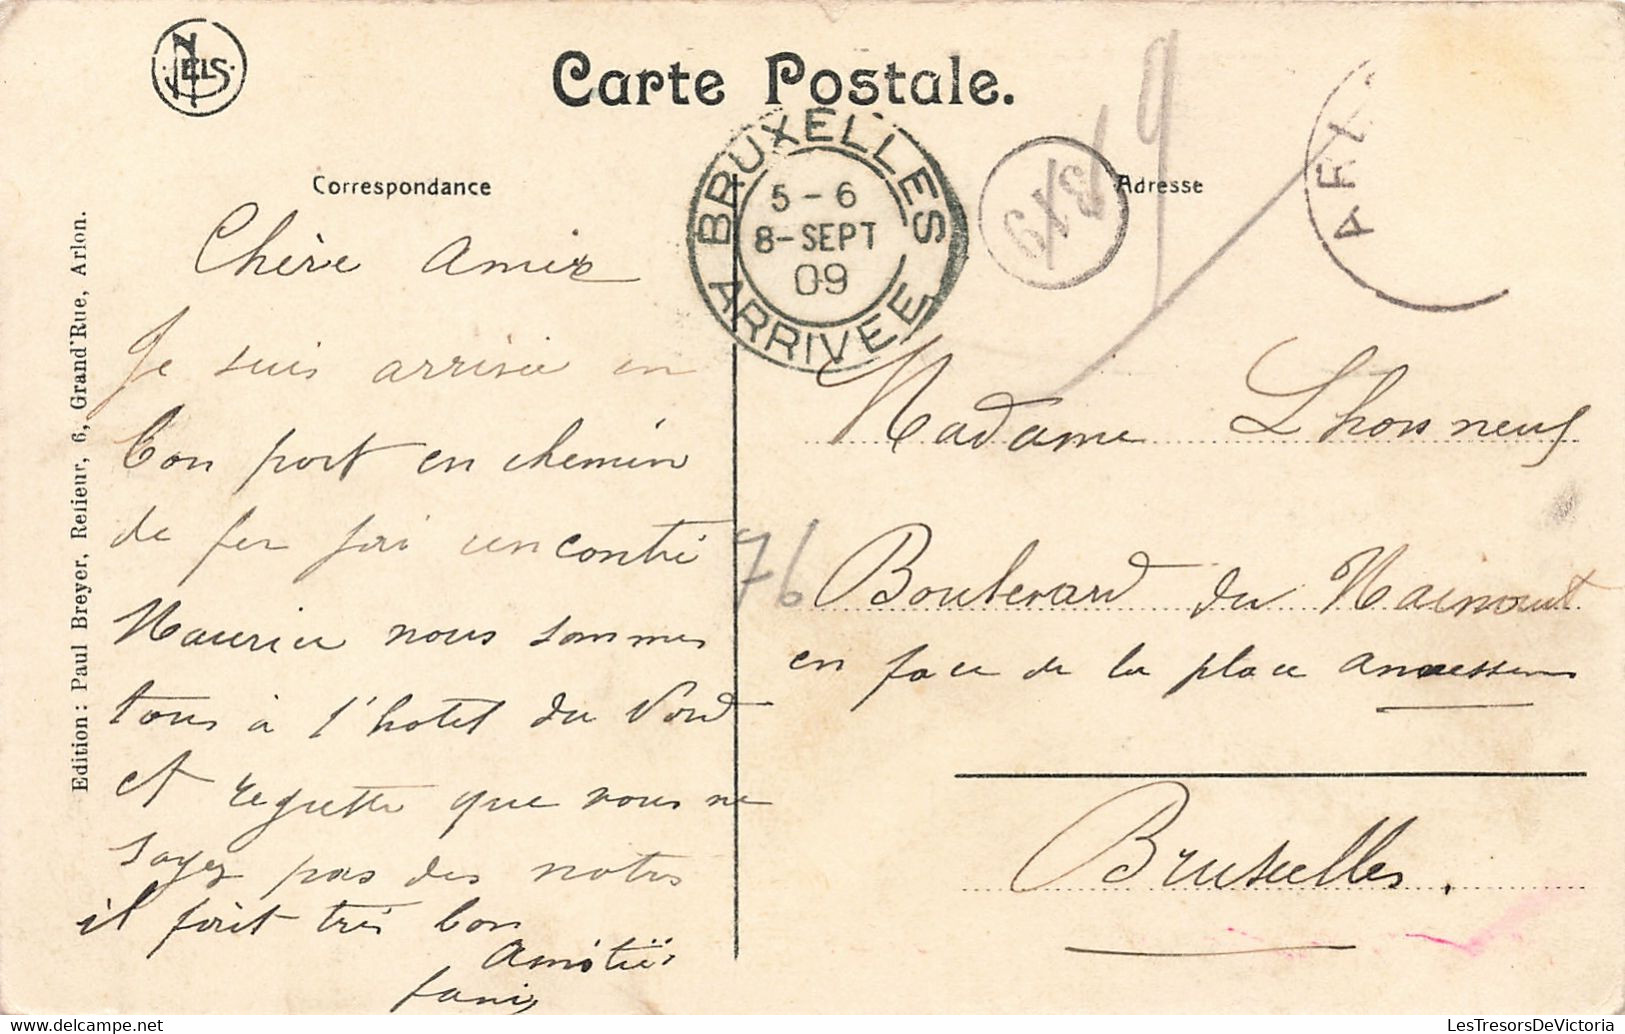 NELS
Carte Postale.
Correspondance
Adresse
BRUXELLES
5-6
8-SEPT
09
ARRIVEE
Edition: Paul Breyer, Relieur, 6, Grand'Rue, Arlon.
Chère Amie
Je suis arrivée en
bon port en chemin
de fer jai rencontré
Maurice nous sommes
tous à l'hotel du Nord
et regrette que vous ne
soyez pas des notres
il fait très bon
Amitiés
fanis
Madame
76 Boulevard du Hainaut
en face de la place anneessens
Bruxelles.
LesTresorsDeVictoria